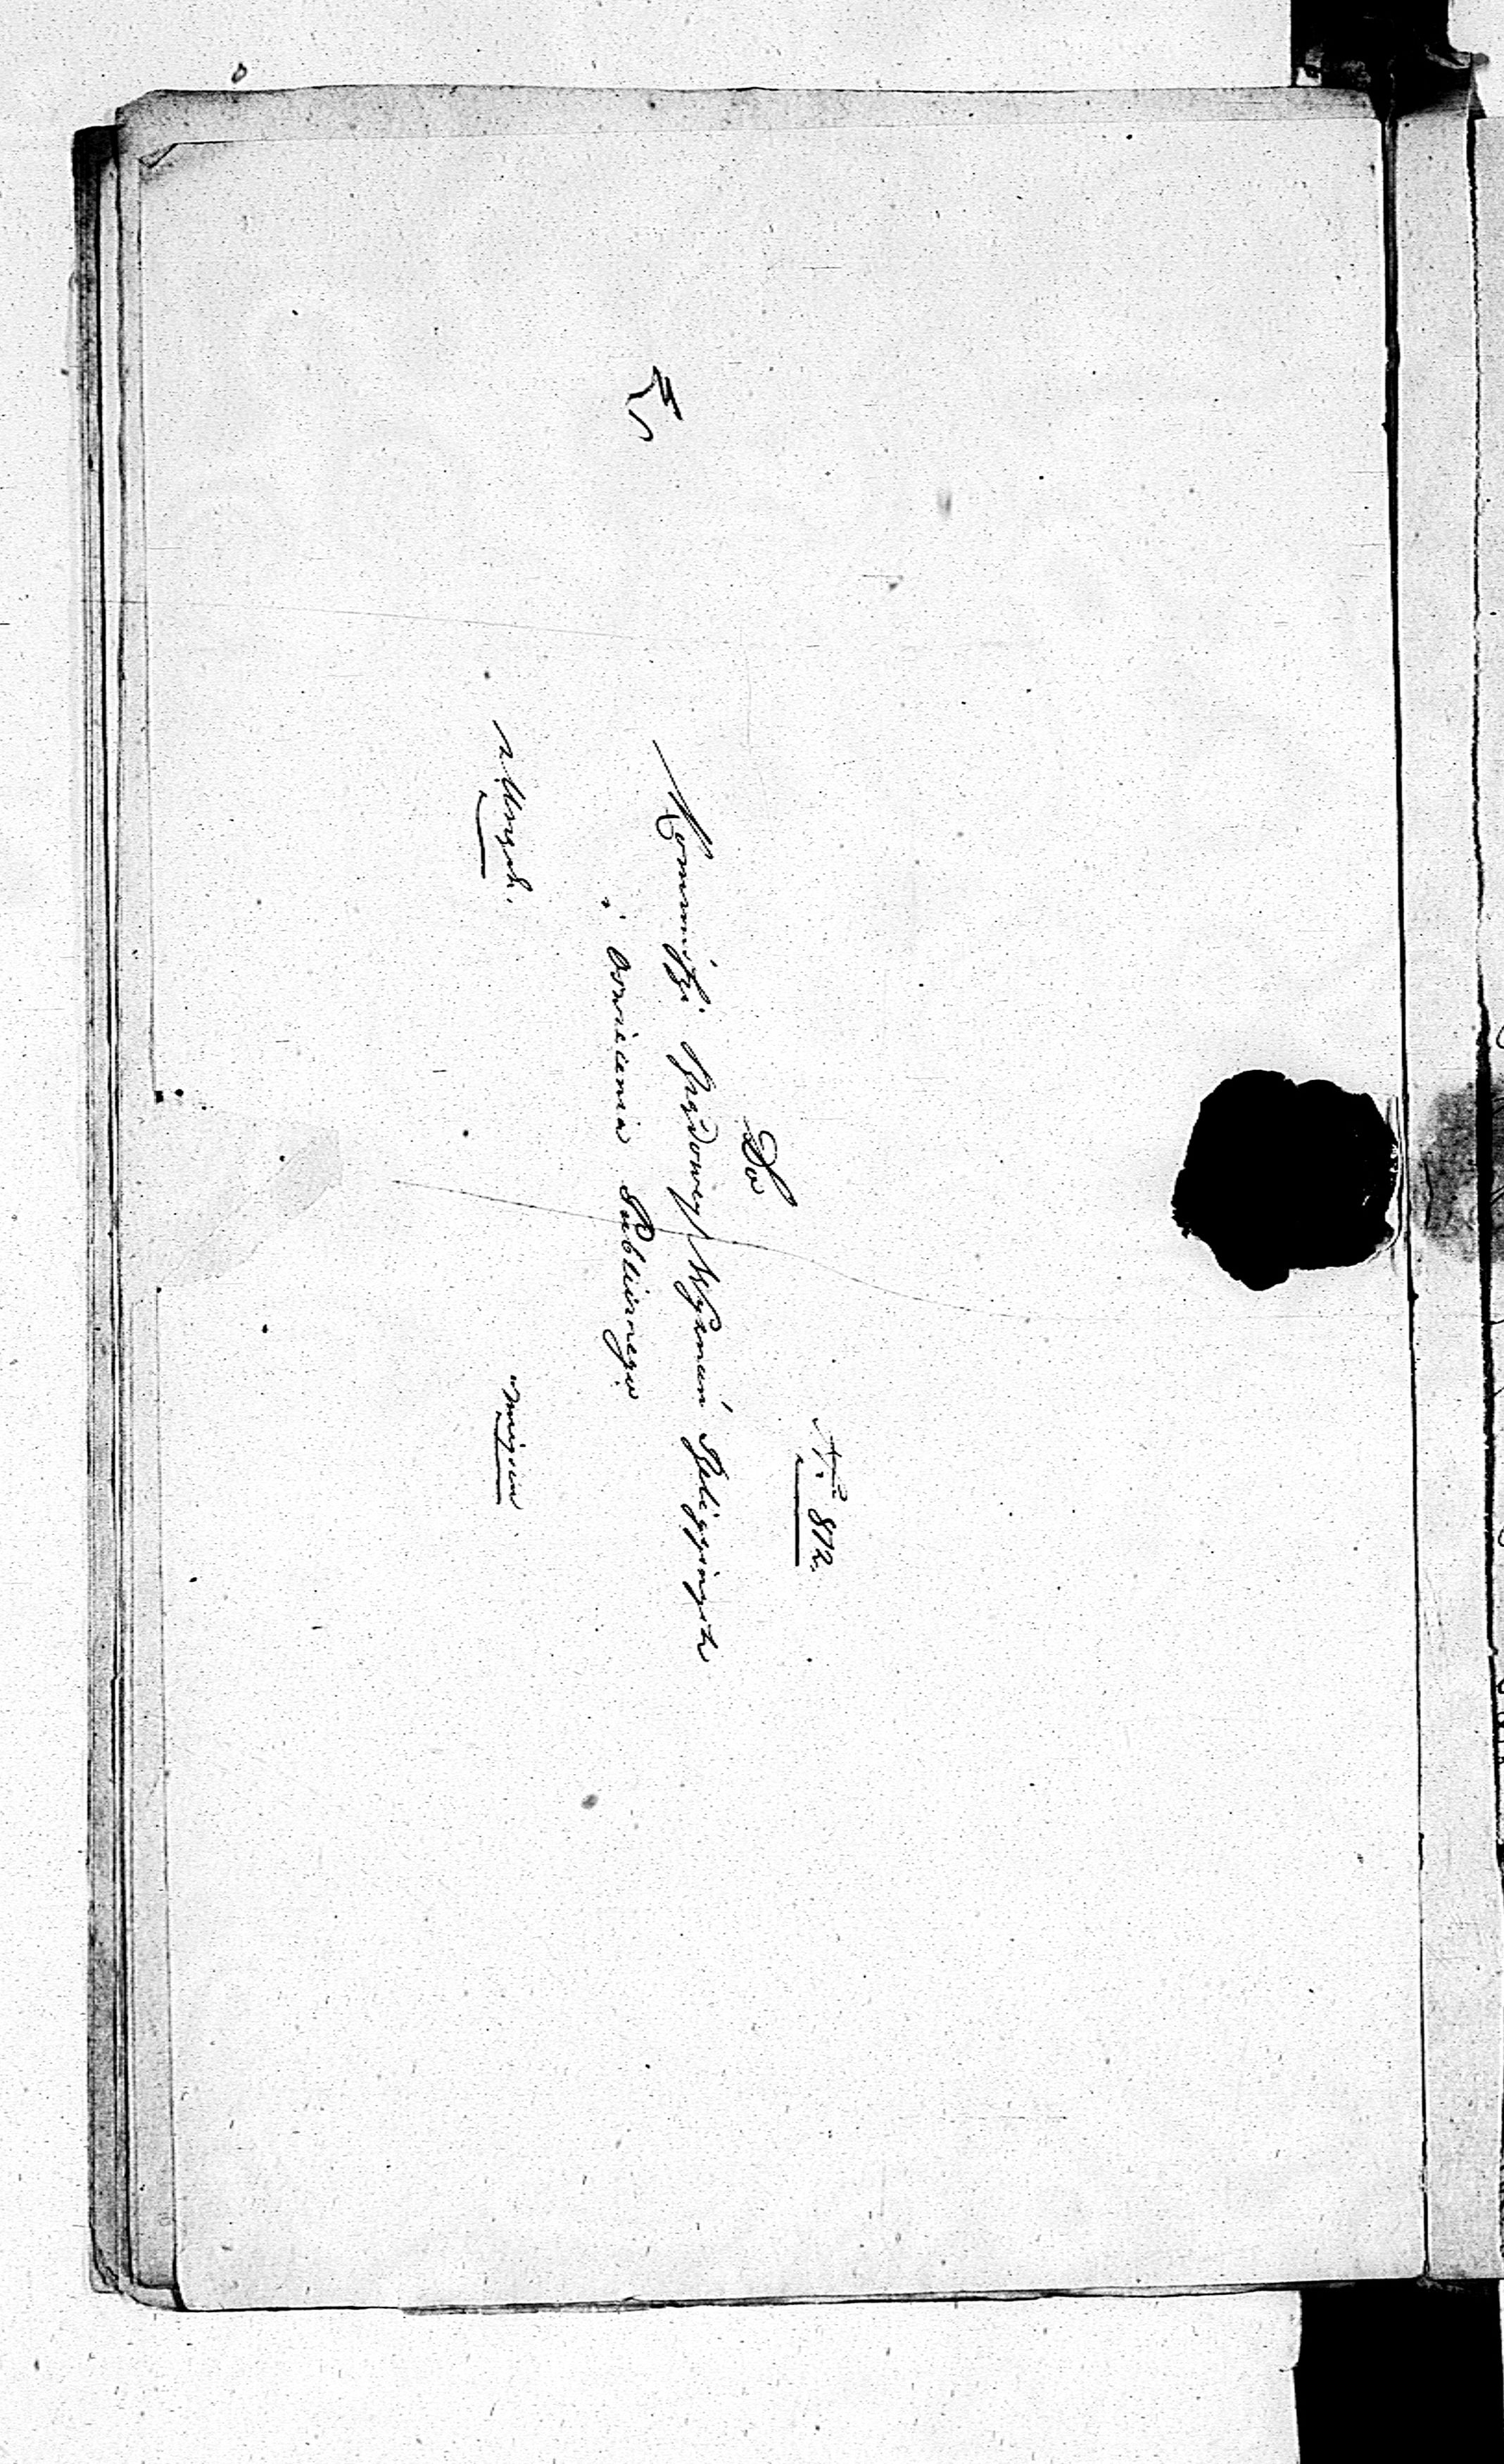 Nro 872.
Do
Kommissyi Rządowey Wyznań Religiynych
i Oswiecenia Publicznego
z Urzęd. w mieyscu